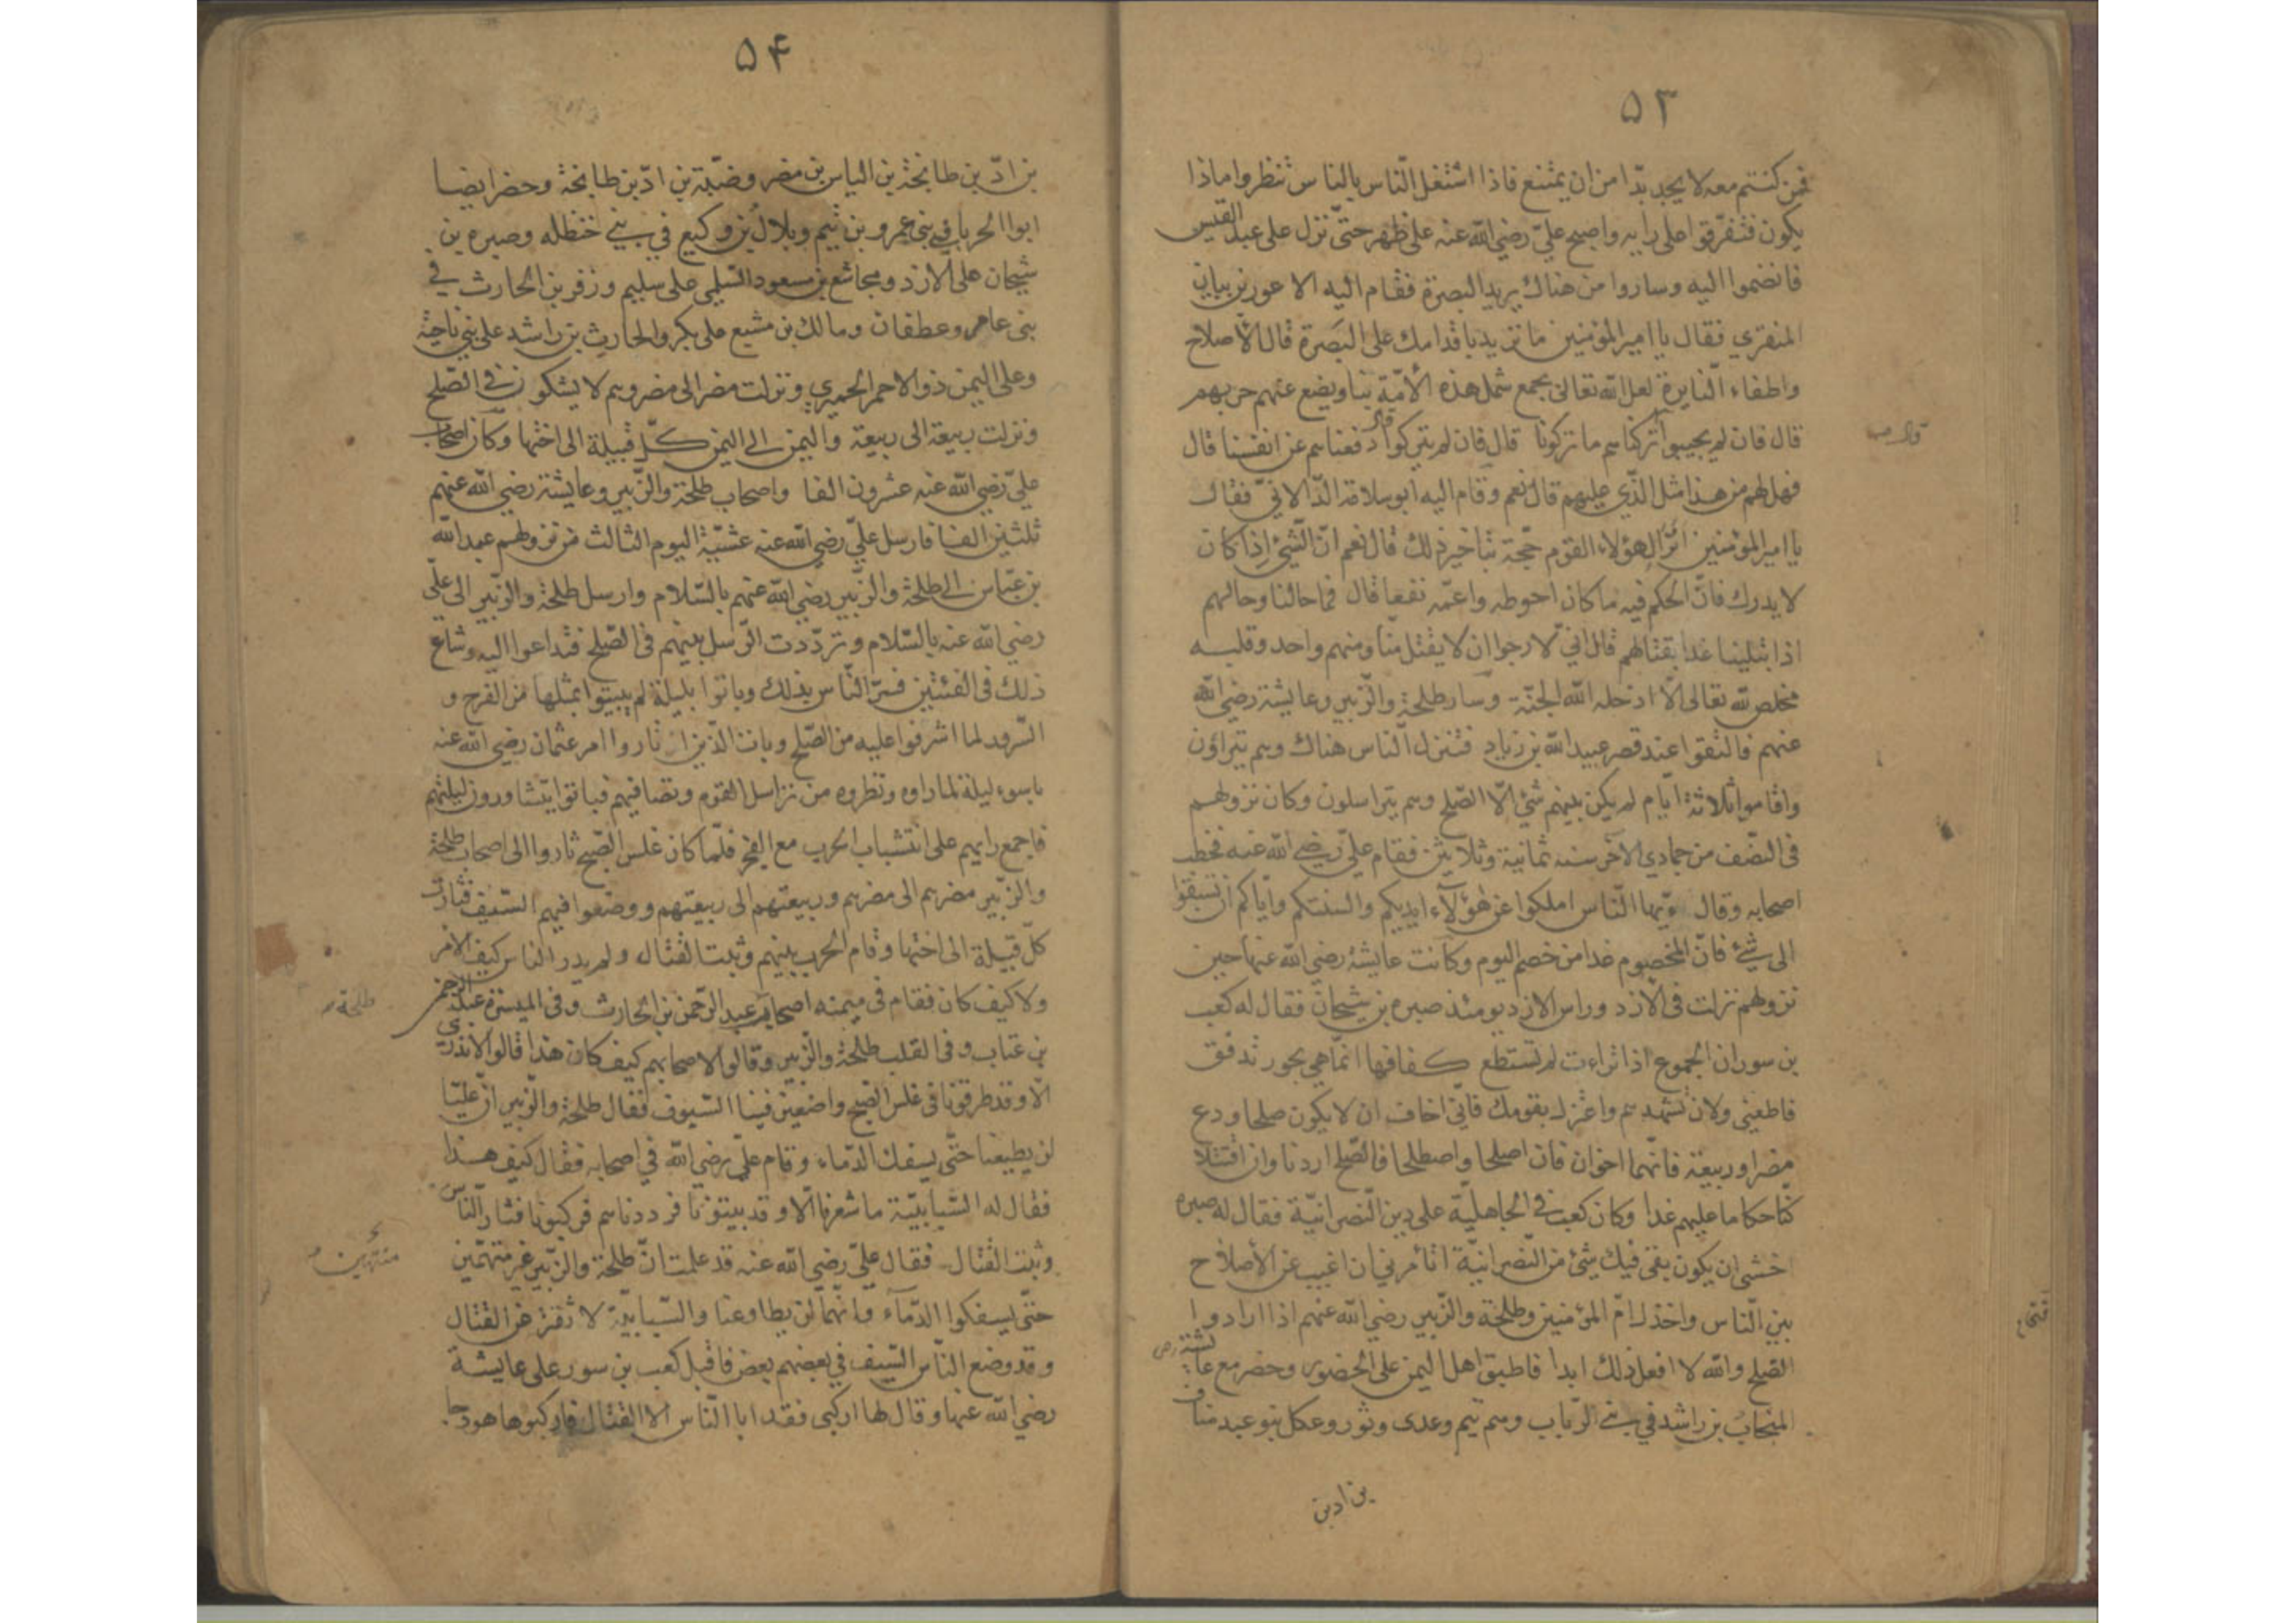 ۵۳
فمن كنتم معه لا يجد بدّا من ان يمتنع فاذا اشتغل النّاس بالناس تنظروا ماذا
يكون فتفرّقوا على رايه واصبح عليّ رضي الله عنه على ظهر حتّى نزل على عبد القيس
فانضموا اليه وساروا من هناك يريد البصرة فقام اليه الاعور بن بيان
المنقري فقال يا امير المؤمنين ما تريد باقدامك على البصرة قال الأصلاح
واطفاء النّايرة لعل الله تعالى يجمع شمل هذه الأمّة بنا ويضع عنهم حربهم
قال فان لم يجيبوا تركناهم ما تركونا قال فان لم يتركوا قال دفعناهم عن انفسنا قال
فهل لهم من هذا مثل الذّي عليهم قال نعم وقام اليه ابو سلامة الدّالانيّ فقال
يا امير المؤمنين اترا لهؤلاء القوم حجّة بتاخير ذلك قال نعم انّ الشّئ اذا كان
لا يدرك فانّ الحكم فيه ما كان احوطه واعمّه نفعا قال فما حالنا وحالهم
اذا بتلينا غدا بقتالهم قال انيّ لارجوا ان لا يقتل منّا ومنهم واحد وقلبه
مخلص لله تعالى الّا ادخله الله الجنّة وسار طلحة والزّبير وعايشة رضي الله
عنهم فالتقوا عند قصر عبيد الله بن زياد فنزل النّاس هناك وهم يتراؤن
واقاموا ثلاثة ايّام لم يكن بينهم شئ الّا الصّلح وهم يتراسلون وكان نزولهم
فى النصّف من جمادي الآخر سنه ثمانية وثلاثين فقام عليّ رضي الله عنه فخطب
اصحابه وقال ايّها النّاس املكوا عن هؤلآء ايديكم والسنتكم وايّاكم ان تسبقوا
الى شئ فانّ المخصوم غدا من خصم اليوم وكانت عايشة رضي الله عنها حين
نزولهم نزلت فى الازد وراس الازد يومئذ صبره بن شيحان فقال له كعب
بن سور ان الجموع اذا تراءت لم تستطع كفافها انمّا هي بحور تدفق
فاطعني ولا تشهدهم واعتزل بقومك فانّي اخاف ان لا يكون صلحا ودع
مضر وربيعة فانّهما اخوان فان اصلحا واصطلحا فالصّلح اردنا وان اقتتلا
كنّا حكاما عليهم غدا وكان كعب فى الجاهليّة على دين النّصرانيّة فقال له صبره
اخشى ان يكون بقى فيك شئ من النّصرانيّة اتأمرني ان اغيب عن الأصلاح
بين النّاس واخذل امّ المؤمنين وطلحة والزّبير رضي الله عنهم اذا ارادوا
الصّلح والله لا افعل ذلك ابدا فاطبق اهل اليمن على الحضور وحضر مع عايشة رض
المنجاب بن راشد في بني الرّباب وهم تيم وعدى وثور وعكل بنو عبد مناف
بن ادبن
۵۴
بن ادّ بن طابخة بن الياس بن مضر وضبّة بن ادّ بن طابخة وحضر ايضا
ابوا الحربا في بنى عمرو بن تيم وبلال بن وكيع في بني حنظله وصبره بن
شيحان على الازد ومجاشع بن مسعود السّلمي على سليم وزفر بن الحارث في
بنى عامر وعطفان ومالك بن مشيع على بكر والحارث بن راشد على بني ناجية
وعلى اليمن ذو الاحمر الحميري ونزلت مضر الى مضر وهم لا يشكون فى الصّلح
ونزلت ربيعة الى ربيعة واليمن الى اليمن كلّ قبيلة الى اختها وكان اصحاب
عليّ رضي الله عنه عشرون الفا واصحاب طلحة والزّبير وعايشة رضي الله عنهم
ثلثين الفا فارسل عليّ رضي الله عنه عشيّة اليوم الثالث من نزولهم عبد الله
بن عبّاس الى طلحة والزّبير رضي الله عنهم بالسّلام وارسل طلحة والزّبير الى عليّ
رضي الله عنه بالسّلام وتردّدت الرّسل بينهم فى الصّلح فتداعوا اليه وشاع
ذلك فى الفئتين فسرّ النّاس بذلك وباتوا بليلة لم يبيتوا بمثلها من الفرح و
السّرور لما اشرفوا عليه من الصّلح وبات الذّين اثاروا امر عثمان رضي الله عنه
باسوء ليلة لما راوه ونظروه من تراسل القوم وتصافيهم فباتوا يتشاورون ليلتهم
فاجمع رايهم على انتشاب الحرب مع الفجر فلمّا كان غلس الصّبح ثاروا الى اصحاب طلحة
والزّبير مضرهم الى مضرهم وربيعتهم الى ربيعتهم ووضعوا فيهم السّيف فثارت
كلّ قبيلة الى اختها وقام الحرب بينهم وثبت القتال ولم يدر الناس كيف الأمر
ولا كيف كان فقام فى ميمنه اصحابه عبد الرّحمن بن الحارث وفى الميسرة عبد الرحمن
بن عتاب وفى القلب طلحة والزّبير وقالوا لاصحابهم كيف كان هذا قالوا لا ندري
الّا وقد طرقونا فى غلس الصّبح واضعين فينا السّيوف فقال طلحة والزّبير انّ عليّا
لن يطيعنا حتّى يسفك الدّماء وقام عليّ رضي الله في اصحابه فقال كيف هذا
فقال له السّبابيّة ما شعرنا الّا وقد بيتونا فرددناهم فركبونا فثار النّاس
وثبت القتال فقال عليّ رضي الله عنه قد علمت انّ طلحة والزّبير غير متهمّين
حتّى يسفكوا الدّمآء وانّهما لن يطاوعنا والسّبابيّة لا تفتر عن القتال
وقد وضع النّاس السّيف في بعضهم بعض فاقبل كعب بن سور على عايشة
رضي الله عنها وقال لها اركبى فقد ابا النّاس الا القتال فاركبوها هودجا
طلحة